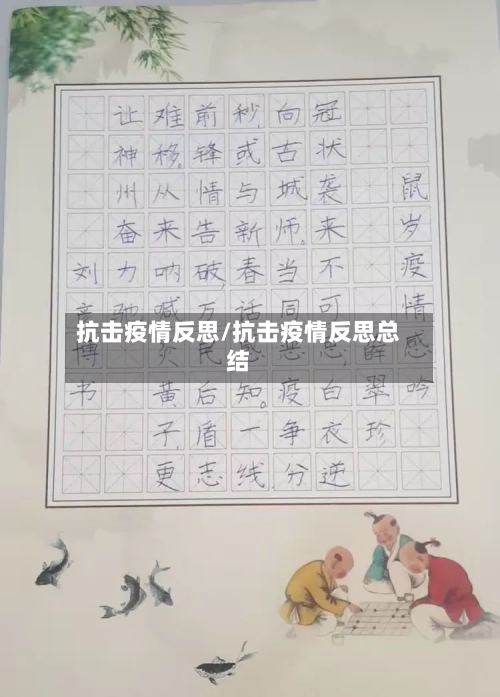 鼠岁疫情感吟
薛翠珍
冠状袭来不可 白衣逆
向古城师。当同恶疫争分
秒,或与新春话 知。一线
前锋情告破,万民后盾志
难移。从来呐喊炎黄子,更
让神州奋力驰
刘 博书
抗击疫情反思/抗击疫情反思总
结